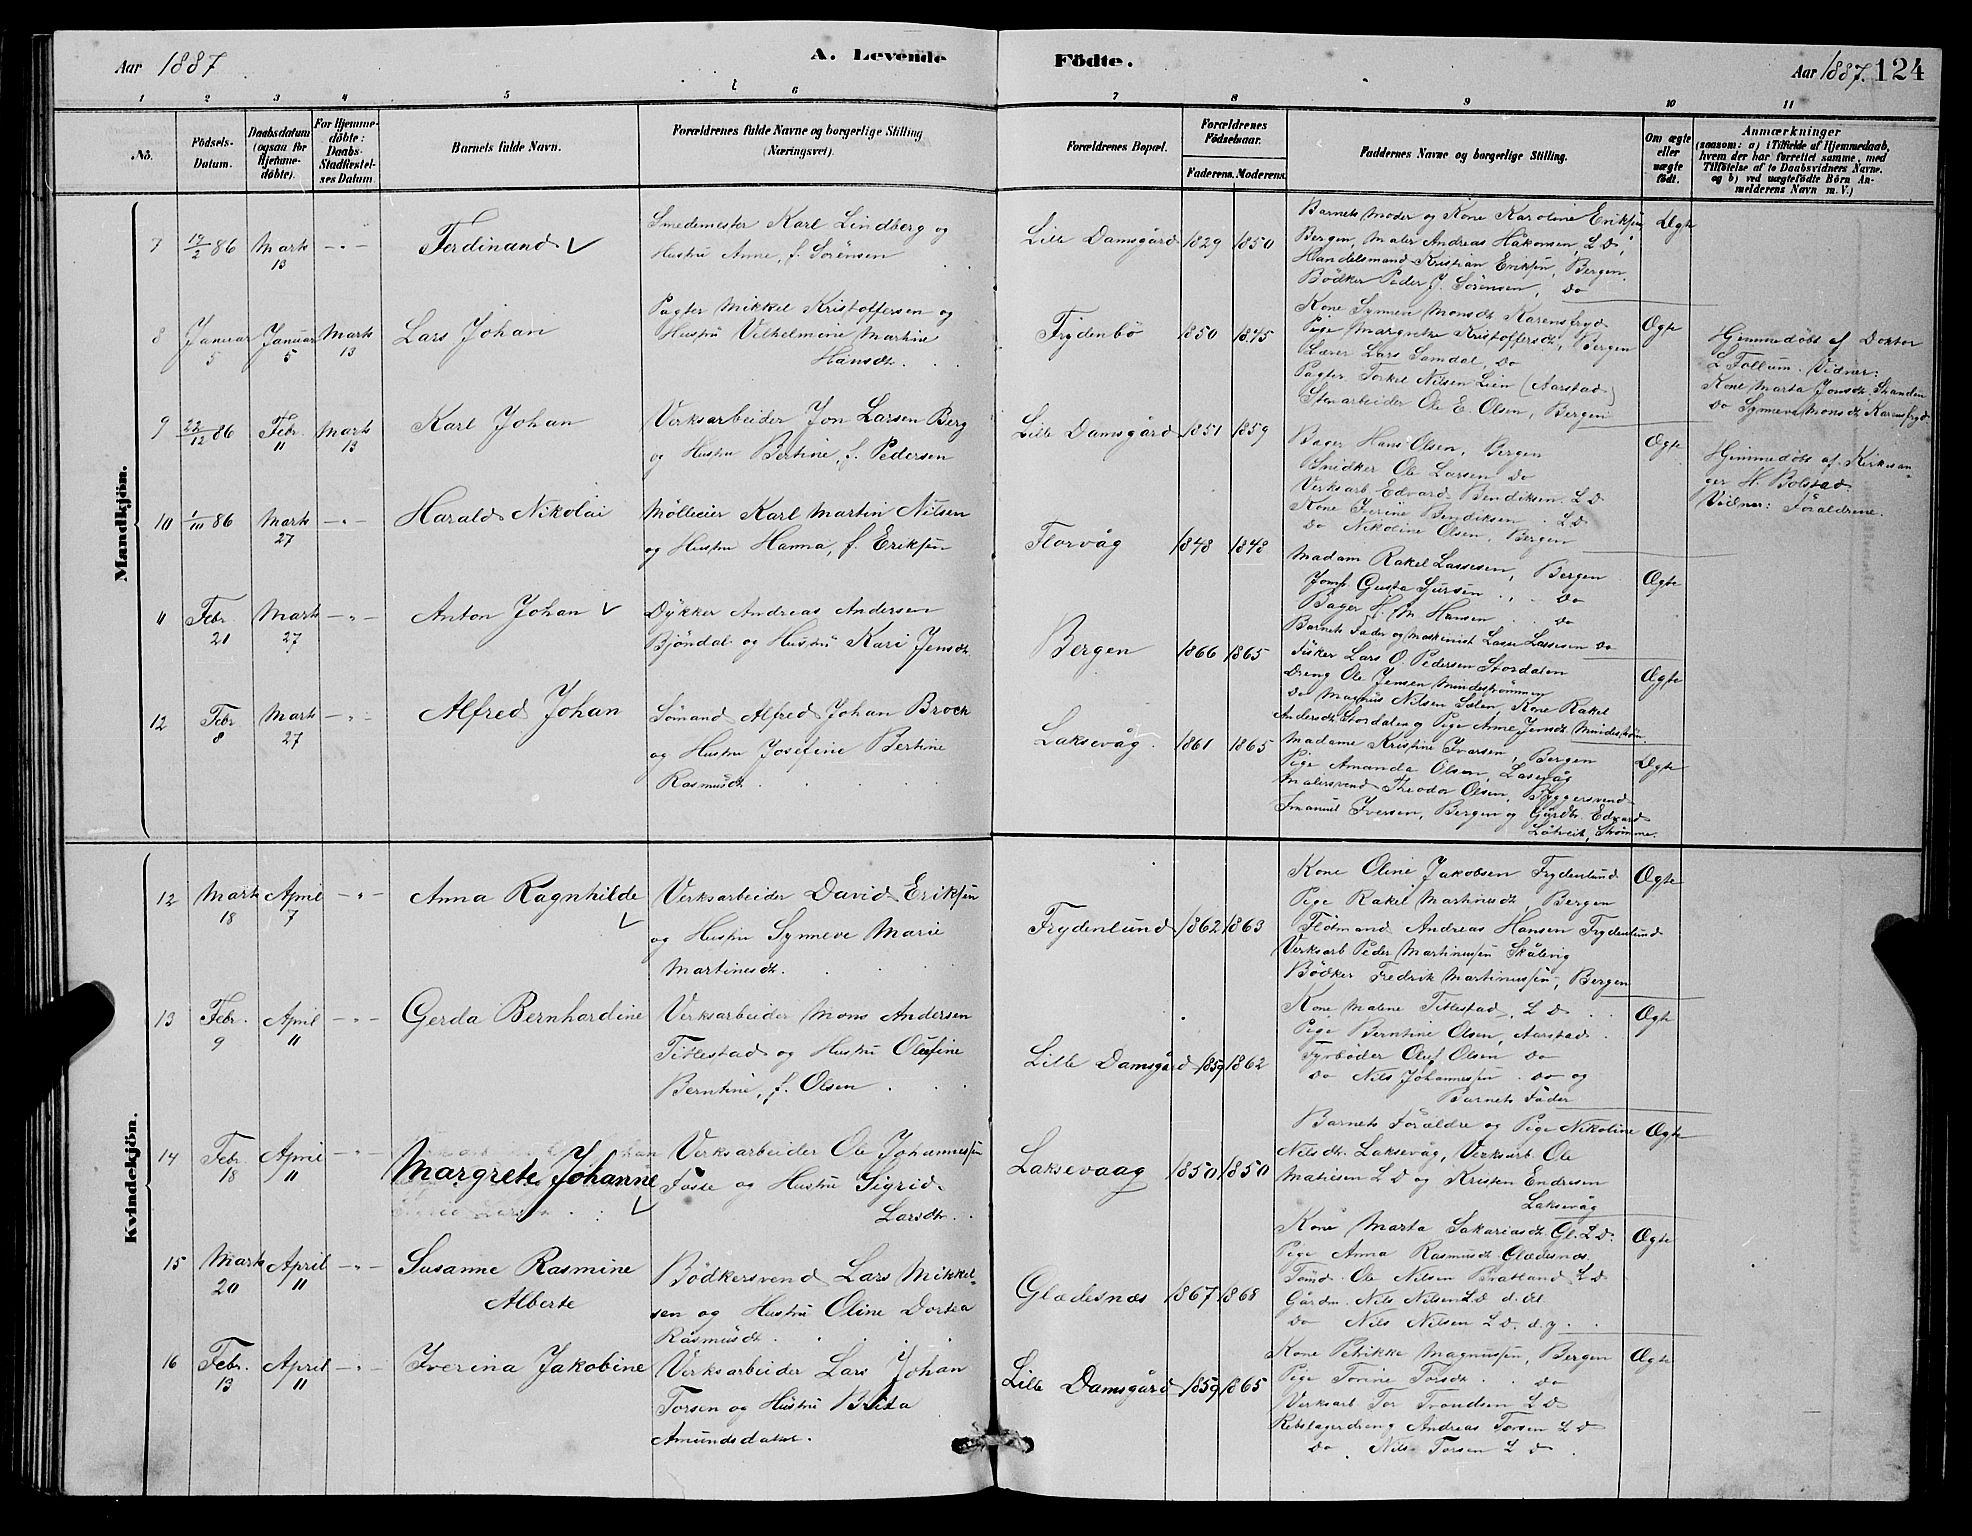 Aar 1887
A. Levende
Födte.
Aar 1887. 124
1 2 3 4 5 6 7 8 9 10 11
No.
Födsels-Datum.
Daabsdatum (ogsaa for Hjemmedöbte).
For Hjemmedöbte: Daabs-Stadfæstelses Datum.
Barnets fulde Navn.
Forældrenes fulde Navne og borgerlige Stilling (Næringsvei).
Forældrenes Bopæl.
Forældrenes Födselsaar.
Faderens. Moderens.
Faddernes Navne og borgerlige Stilling.
Om ægte eller uægte födt.
Anmærkninger
(saasom: a) i Tilfælde af Hjemmedaab, hvem der har forrettet samme, med Tilföielse af to Daabsvidners Navne. og b) ved uægtefödte Börn Anmelderens Navn m. V.)
Mandkjön.
7 19/2 86 Marts 13 -"- Ferdinand ✓
Smedemester Karl Lindberg og
Hustru Anne, f. Sörensen
Lille Damsgård 1829 1850
Barnets Moder og Kone Karoline Eriksen
Bergen, Maler Andreas Håkonsen, L D,
Handelsmand Kristian Eriksen, Bergen.
Bödker Peder J. Sörensen, do
Ægte
8 Januar 5 Januar 5 Marts 13 Lars Johan
Pagter Mikkel Kristoffersen og
Hustru Vilhelmine Martine
Hansdtr.
Frydenbö 1850 1845
Kone Synnev Monsdtr Karensfryd
Pige Margrethe Kristoffersdtr, Bergen
Lærer Lars Samdal, do
Pagter Torkel Nilsen Lien (Aarstad)
Stenarbeider Ole E. Olsen, Bergen
Ægte
Hjemmedöbt af Doktor
L Follum. Vidner:
Kone Marta Jonsdtr. Skanden
Do Synneve Monsdtr Karensfryd
9 22/12 86 Febr. 11 Marts 13 Karl Johan
Verksarbeider Jon Larsen Berg
og Hustru Bertine, f. Pedersen
Lille Damsgård 1851 1859
Bager Hans Olsen, Bergen
Snidker Ole Larsen do
Verksarb. Edvard Bendiksen L D
Kone Iverine Bendiksen L D
do Nikoline Olsen, Bergen
Ægte
Hjemmedöbt af Kirkesan-
ger H. Bolstad.
Vidner: Föraldrene.
10 1/10 86 Marts 27 -"- Harald Nikolai
Mölleeier Karl Martin Nilsen
og Hustru Hanna, f. Eriksen
Florvåg 1848 1848
Madam Rakel Lassesen, Bergen
Jomf. Gusta Sjursen, do
Bager H. M. Hansen do
Barnets Fader og Maskinist Lasse Lassesen do
Ægte
11 Febr 21 Marts 27 -"- Anton Johan ✓
Dykker Andreas Andersen
Bjöndal og Hustru Kari Jensdtr.
Bergen 1866 1865
Fisker Lars O. Pedersen Stordalen
Dreng Ole Jensen Mindeströmmen
Do Magnus Nilsen Sælen, Kone Rakel
Andersdtr Stordalen og Pige Anne Jensdtr Mindeström.
Ægte
12 Febr 8 Marts 27 -"- Alfred Johan
Sömand Alfred Johan Brock
og Hustru Josefine Bertine
Rasmusdtr.
Laksevåg. 1861 1865
Madame Kristine Ivarsen, Bergen
Pige Amanda Olsen, Laxevåg
Malersvend Theodor Olsen, Byggersvend
Imanuel Iversen, Bergen og Gårdbr. Edvard
Lötveit, Strömme.
Ægte
Kvindekjön.
12 Marts 18 April 7 -"- Anna Ragnhilde ✓
Verksarbeider David Eriksen
og Hustru Synneve Marie
Martinusdtr.
Frydenlund 1862 1863
Kone Oline Jakobsen Frydenlund
Pige Rakel Martinusdtr, Bergen
Flötmand Andreas Hansen Frydenlund
Verksarb Peder Martinussen Skålevig
Bödker Fredrik Martinussen, Bergen
Ægte
13 Febr. 9 April 11 -"- Gerda Bernhardine
Verksarbeider Mons Andersen
Titlestad og Hustru Olefine
Berntine, f. Olsen
Lille Damsgård 1859 1862
Kone Malene Titlestad, L D
Pige Berntine Olsen, Aarstad
Fyrböder Oluf Olsen do
do Nils Johannessen do og
Barnets Fader
Ægte
14 Febr. 18 April 11 -"- Margrete Johanne ✓
Verksarbeider Ole Johannessen
Fosse og Hustru Sigrid
Larsdtr.
Laksevaag 1850 1850
Barnets Foraldre og Pige Nikoline
Nilsdtr. Laksevåg, Verksarb. Ole
Matiesen L D og Kristen Endresen
Laksevåg
Ægte
15 Marts 20 April 11 -"- Susanne Rasmine
Alberte
Bödkersvend Lars Mikkel-
sen og Hustru Oline Dortea
Rasmusdtr.
Glædesnæs 1867 1868
Kone Marta Sakariasdtr. Gl. L D.
Pige Anna Rasmusdtr Glædesnæs
Tömd. Ole Nilsen Bratland L D
Gårdm. Nils Nilsen L D d. æl.
Do Nils Nilsen L D. d. y.
Ægte
16 Febr. 13 April 11 -"- Iverina Jakobine
Verksarbeider Lars Johan
Torsen og Hustru Brita
Amundsdatter.
Lille Damsgård 1859 1865
Kone Petrikke Magnussen, Bergen
Pige Torine Torsdtr. do
Verksarb Tor Trondsen L D
Rebslagerdreng Andreas Torsen L D
Do Nils Torsen L D
Ægte